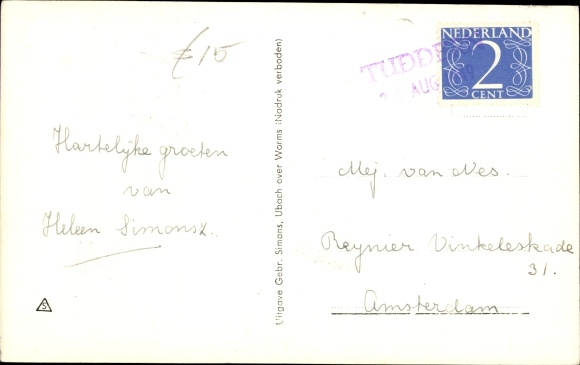 €15
NEDERLAND
2
CENT
AUG
Hartelijke groeten
van
Heleen Simonsz.
Uitgave Gebr. Simons, Ubach over Worms (Nadruk verboden)
Mej. van Nes.
Reynier Vinkeleskade
31.
Amsterdam
S